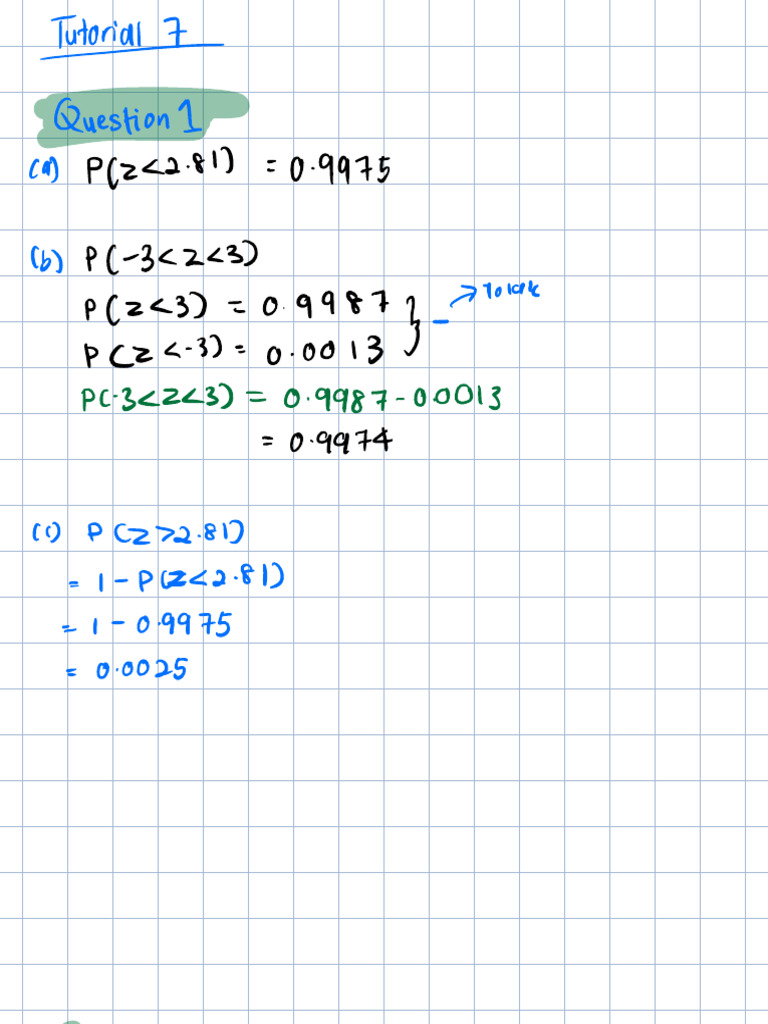 Tutorial 7
Question 1
(a) P(z<2.81) = 0.9975
(b) P(-3<z<3)
P(z<3) = 0.9987
P(z<-3) = 0.0013
P(-3<z<3) = 0.9987-0.0013
= 0.9974
(c) P(z>2.81)
= 1-P(z<2.81)
= 1-0.9975
= 0.0025